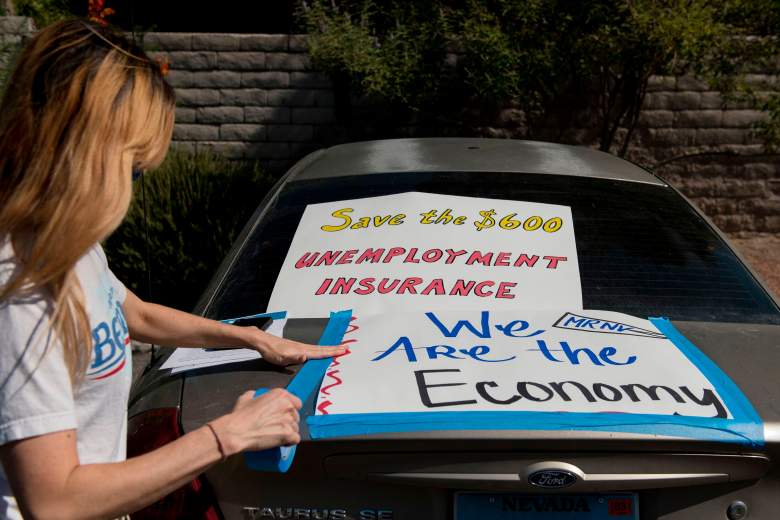 Save the $600
UNEMPLOYMENT
INSURANCE
We
MRNV
Are the
Economy
BE
Ford
TAURUS SE
NEVADA